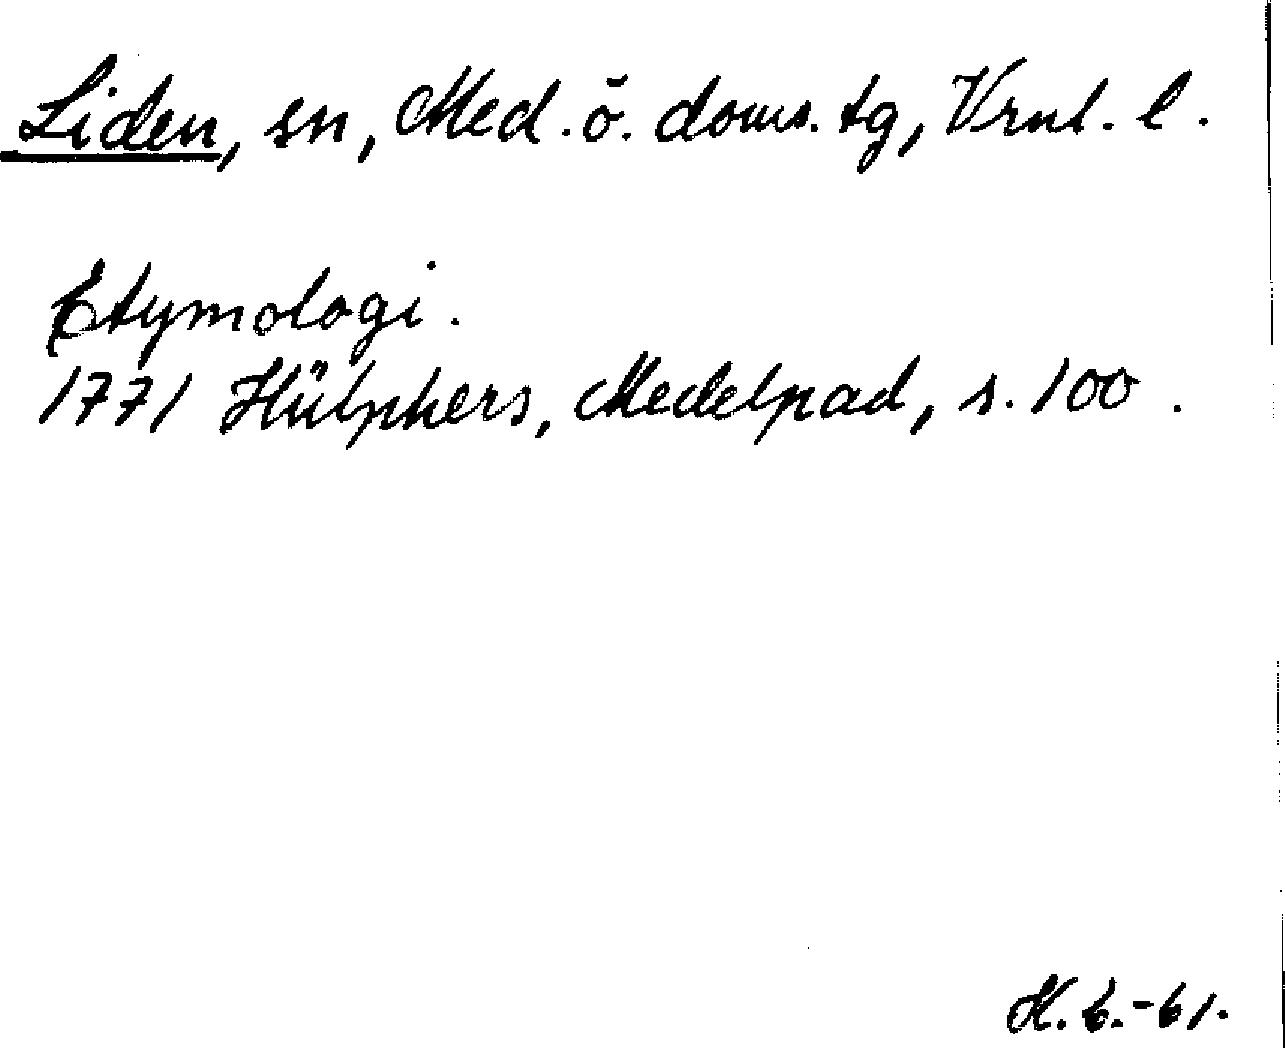 Liden, sn, Med. ö. doms. tg, Vrnl. l.
Etymologi.
1771 Hülphers, Medelpad, s. 100.
H. b. -61.